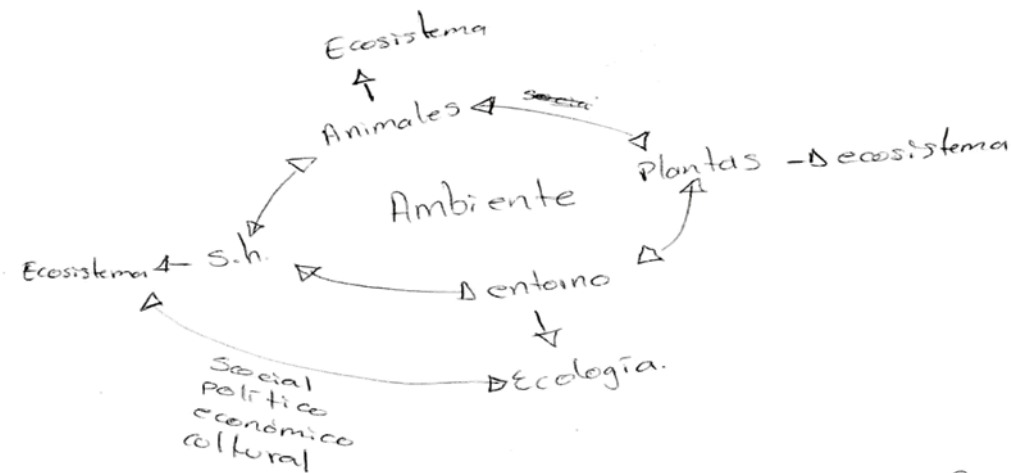 Ecosistema
Animales
Plantas → ecosistema
Ambiente
Ecosistema ← s.h.
entorno
Ecología.
Scocial
político
económico
coltural